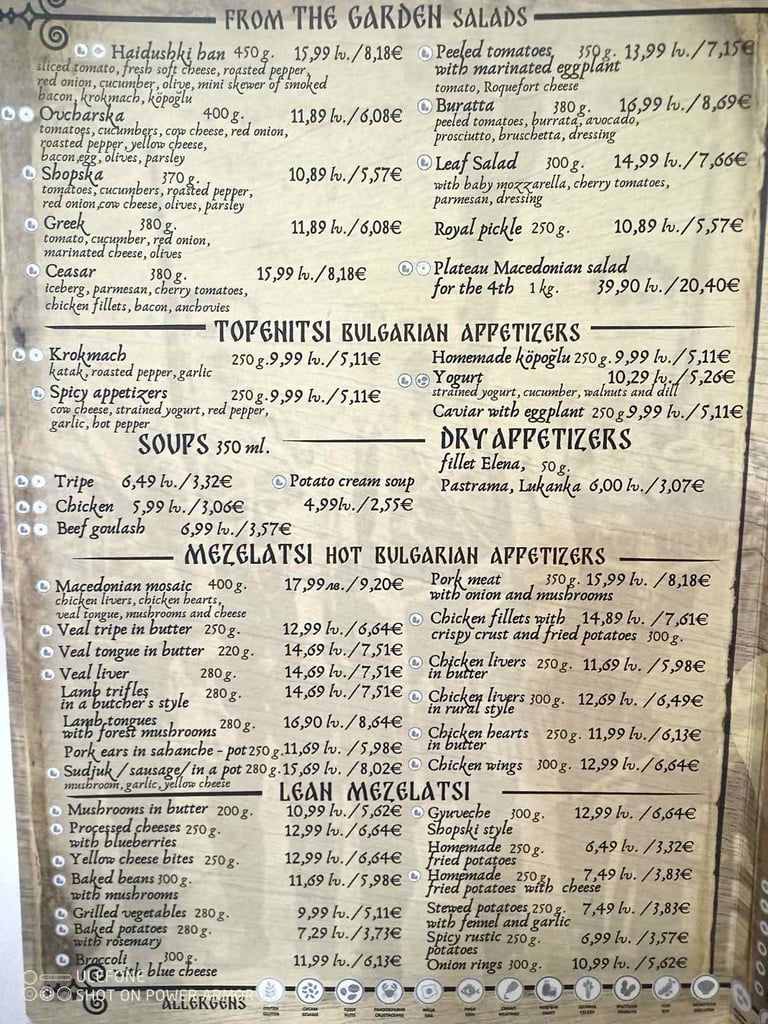 FROM THE GARDEN SALADS
Haidushki han 450 g. 15,99 lv./8,18€
sliced tomato, fresh soft cheese, roasted pepper,
red onion, cucumber, olive, mini skewer of smoked
bacon, krokmach, köpoğlu
Ovcharska 400 g. 11,89 lv./6,08€
tomatoes, cucumbers, cow cheese, red onion,
roasted pepper, yellow cheese,
bacon,egg, olives, parsley
Shopska 370 g. 10,89 lv./5,57€
tomatoes, cucumbers, roasted pepper,
red onion,cow cheese, olives, parsley
Greek 380 g. 11,89 lv./6,08€
tomato, cucumber, red onion,
marinated cheese, olives
Ceasar 380 g. 15,99 lv./8,18€
iceberg, parmesan, cherry tomatoes,
chicken fillets, bacon, anchovies
Peeled tomatoes 350 g. 13,99 lv./7,15€
with marinated eggplant
tomato, Roquefort cheese
Buratta 380 g. 16,99 lv./8,69€
peeled tomatoes, burrata, avocado,
prosciutto, bruschetta, dressing
Leaf Salad 300 g. 14,99 lv./7,66€
with baby mozzarella, cherry tomatoes,
parmesan, dressing
Royal pickle 250 g. 10,89 lv./5,57€
Plateau Macedonian salad
for the 4th 1 kg. 39,90 lv./20,40€
TOPENITSI BULGARIAN APPETIZERS
Krokmach 250 g.9,99 lv./5,11€
katak, roasted pepper, garlic
Spicy appetizers 250 g.9,99 lv./5,11€
cow cheese, strained yogurt, red pepper,
garlic, hot pepper
Homemade köpoğlu 250 g.9,99 lv./5,11€
Yogurt 10,29 lv./5,26€
strained yogurt, cucumber, walnuts and dill
Caviar with eggplant 250 g9,99 lv./5,11€
SOUPS 350 ml.
Tripe 6,49 lv./3,32€
Chicken 5,99 lv./3,06€
Beef goulash 6,99 lv./3,57€
Potato cream soup
4,99lv./2,55€
DRY APPETIZERS
fillet Elena, 50 g.
Pastrama, Lukanka 6,00 lv./3,07€
MEZELATSI HOT BULGARIAN APPETIZERS
Macedonian mosaic 400 g. 17,99лв./9,20€
chicken livers, chicken hearts,
veal tongue, mushrooms and cheese
Veal tripe in butter 250 g. 12,99 lv./6,64€
Veal tongue in butter 220 g. 14,69 lv./7,51€
Veal liver 280 g. 14,69 lv./7,51€
Lamb trifles 280 g. 14,69 lv./7,51€
in a butcher's style
Lamb tongues 280 g. 16,90 lv./8,64€
with forest mushrooms
Pork ears in sahanche - pot 250 g.11,69 lv. /5,98€
Sudjuk/sausage/in a pot 280 g.15,69 lv./8,02€
mushroom, garlic, yellow cheese
Pork meat 350 g. 15,99 lv. /8,18€
with onion and mushrooms
Chicken fillets with 14,89 lv./7,61€
crispy crust and fried potatoes 300 g.
Chicken livers 250 g. 11,69 lv./5,98€
in butter
Chicken livers 300 g. 12,69 lv./6,49€
in rural style
Chicken hearts 250 g. 11,99 lv./6,13€
in butter
Chicken wings 300 g. 12,99 lv./6,64€
LEAN MEZELATSI
Mushrooms in butter 200 g. 10,99 lv./5,62€
Processed cheeses 250 g. 12,99 lv./6,64€
with blueberries
Yellow cheese bites 250 g. 12,99 lv./6,64€
Baked beans 300 g. 11,69 lv./5,98€
with mushrooms
Grilled vegetables 280 g. 9,99 lv./5,11€
Baked potatoes 280 g. 7,29 lv./3,73€
with rosemary
Broccoli 300 g. 11,99 lv./6,13€
with blue cheese
Gyuveche 300 g. 12,99 lv. /6,64€
Shopski style
Homemade 250 g. 6,49 lv./3,32€
fried potatoes
Homemade 250 g. 7,49 lv./3,83€
fried potatoes with cheese
Stewed potatoes 250 g. 7,49 lv./3,83€
with fennel and garlic
Spicy rustic 250 g. 6,99 lv./3,57€
potatoes
Onion rings 300 g. 10,99 lv./5,62€
ULEFONE
SHOT ON POWER ARMOR
ALLERGENS